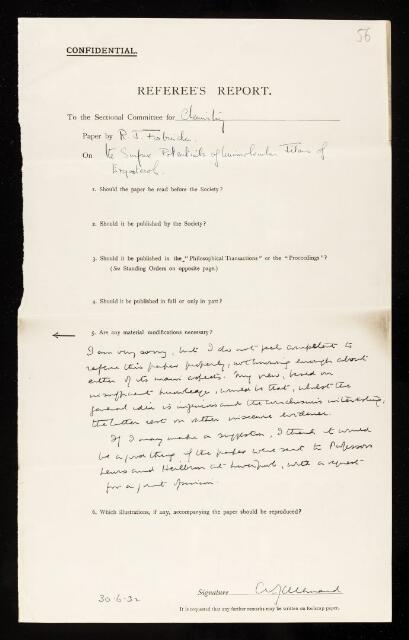 56
CONFIDENTIAL.
REFEREE'S REPORT.
To the Sectional Committee for Chemistry
Paper by R. J. Fosbinder
On the Surface Potentials of Unimolecular Films of
Ergosterol.
1. Should the paper be read before the Society?
2. Should it be published by the Society?
3. Should it be published in the "Philosophical Transactions" or the "Proceedings"?
(See Standing Orders on opposite page.)
4. Should it be published in full or only in part?
5. Are any material modifications necessary?
I am very sorry, but I do not feel competent to
referee this paper properly, not knowing enough about
either of its main aspects. My view, based on
insufficient knowledge, would be that, whilst the
general idea is ingenious and the conclusions interesting,
the latter rest on rather insecure evidence.
If I may make a suggestion, I think it would
be a good thing if the paper were sent to Professors
Lewis and Heilbron at Liverpool, with a request
for a joint opinion.
6. Which illustrations, if any, accompanying the paper should be reproduced?
Signature
30-6-32
It is requested that any further remarks may be written on foolscap paper.